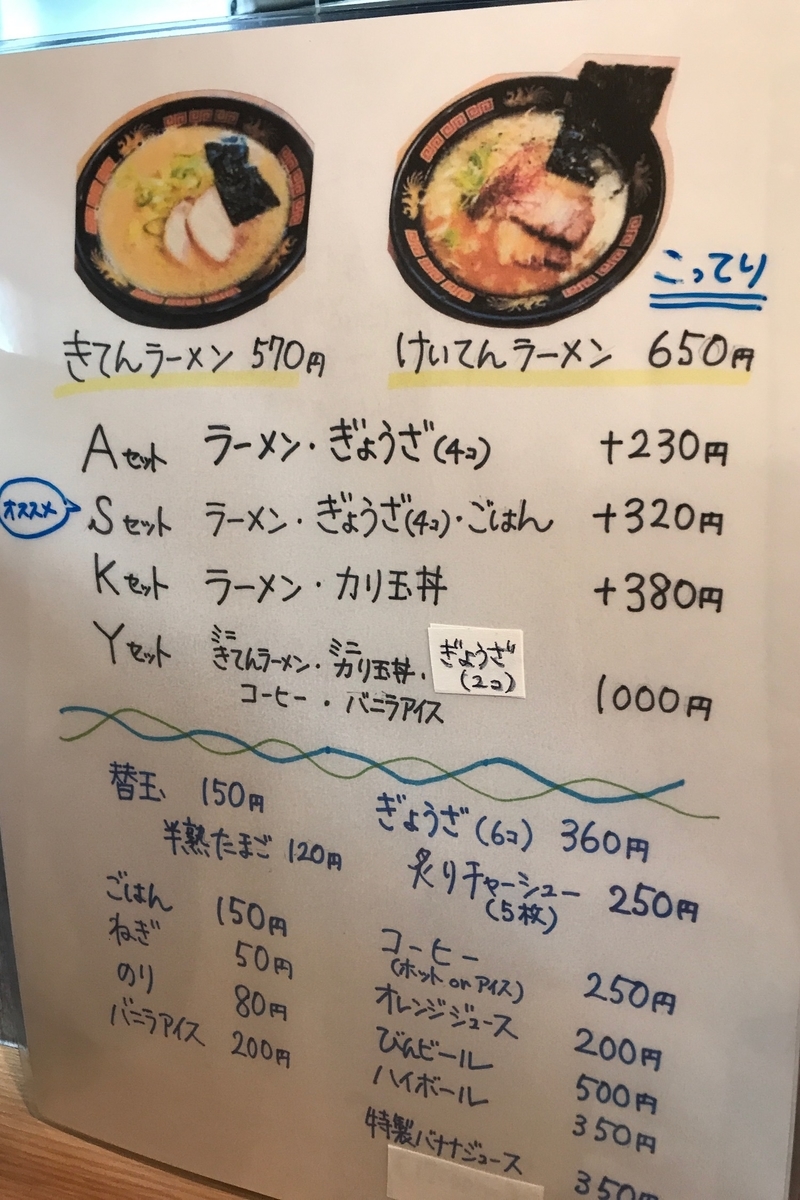 こってり
きてんラーメン 570円
けいてんラーメン 650円
Aセット ラーメン・ぎょうざ(4コ) +230円
オススメ Sセット ラーメン・ぎょうざ(4コ)・ごはん +320円
Kセット ラーメン・カリ玉丼 +380円
Yセット ミニきてんラーメン・ミニカリ玉丼・ぎょうざ(2コ)
コーヒー・バニラアイス 1000円
替玉 150円
半熟たまご 120円
ごはん 150円
ねぎ 50円
のり 80円
バニラアイス 200円
ぎょうざ(6コ) 360円
炙りチャーシュー 250円
(5枚)
コーヒー 250円
(ホット or アイス)
オレンジジュース 200円
びんビール 500円
ハイボール 350円
特製バナナジュース 350円